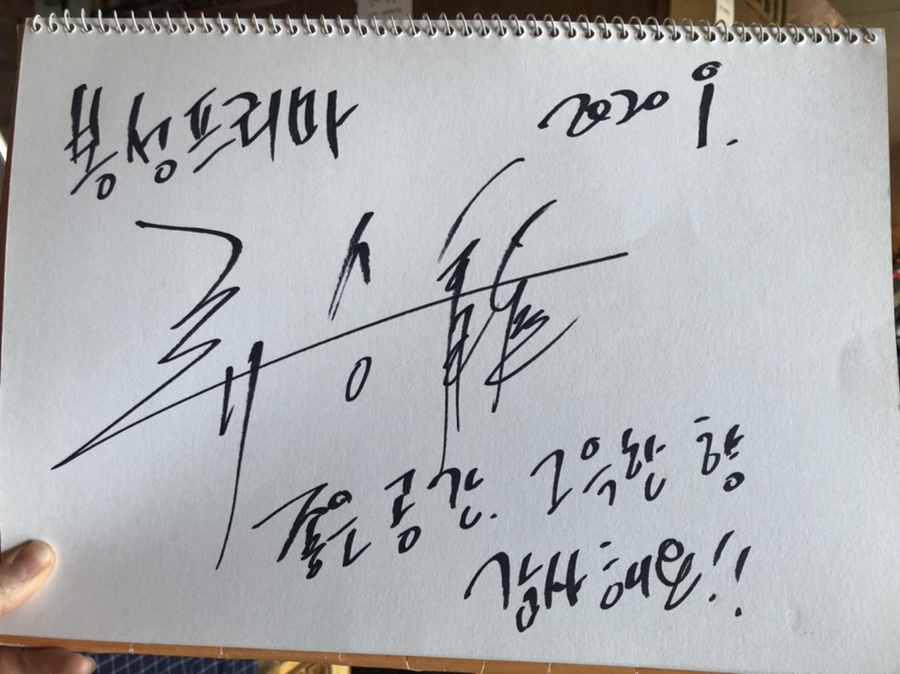 봉성프리마 2020 9.
류승龍
좋은 공간. 그윽한 향
감사해요!!